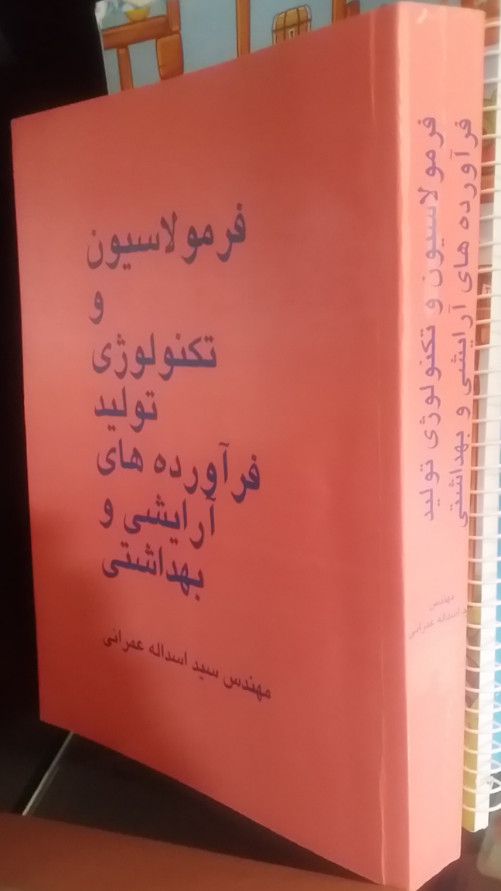 فرمولاسیون
و
تکنولوژی
تولید
فرآورده های
آرایشی و
بهداشتی
مهندس سید اسداله عمرانی
فرمولاسیون و تکنولوژی تولید
فرآورده های آرایشی و بهداشتی
مهندس
اسداله عمرانی